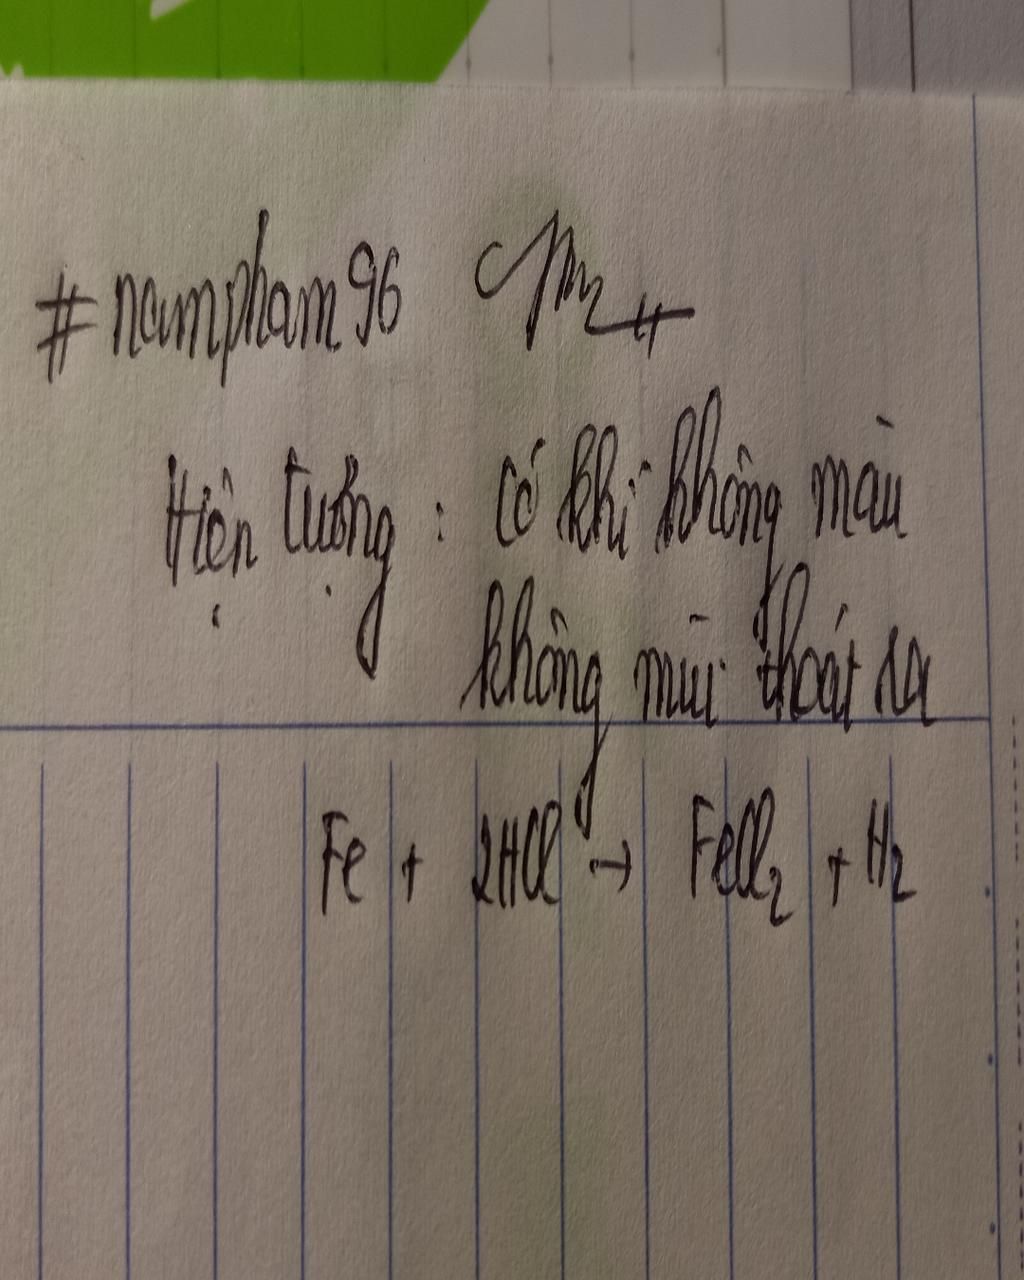 #nampham96
Hiện tượng : có khí không màu
không mùi thoát ra
Fe + 2HCl → FeCl₂ + H₂